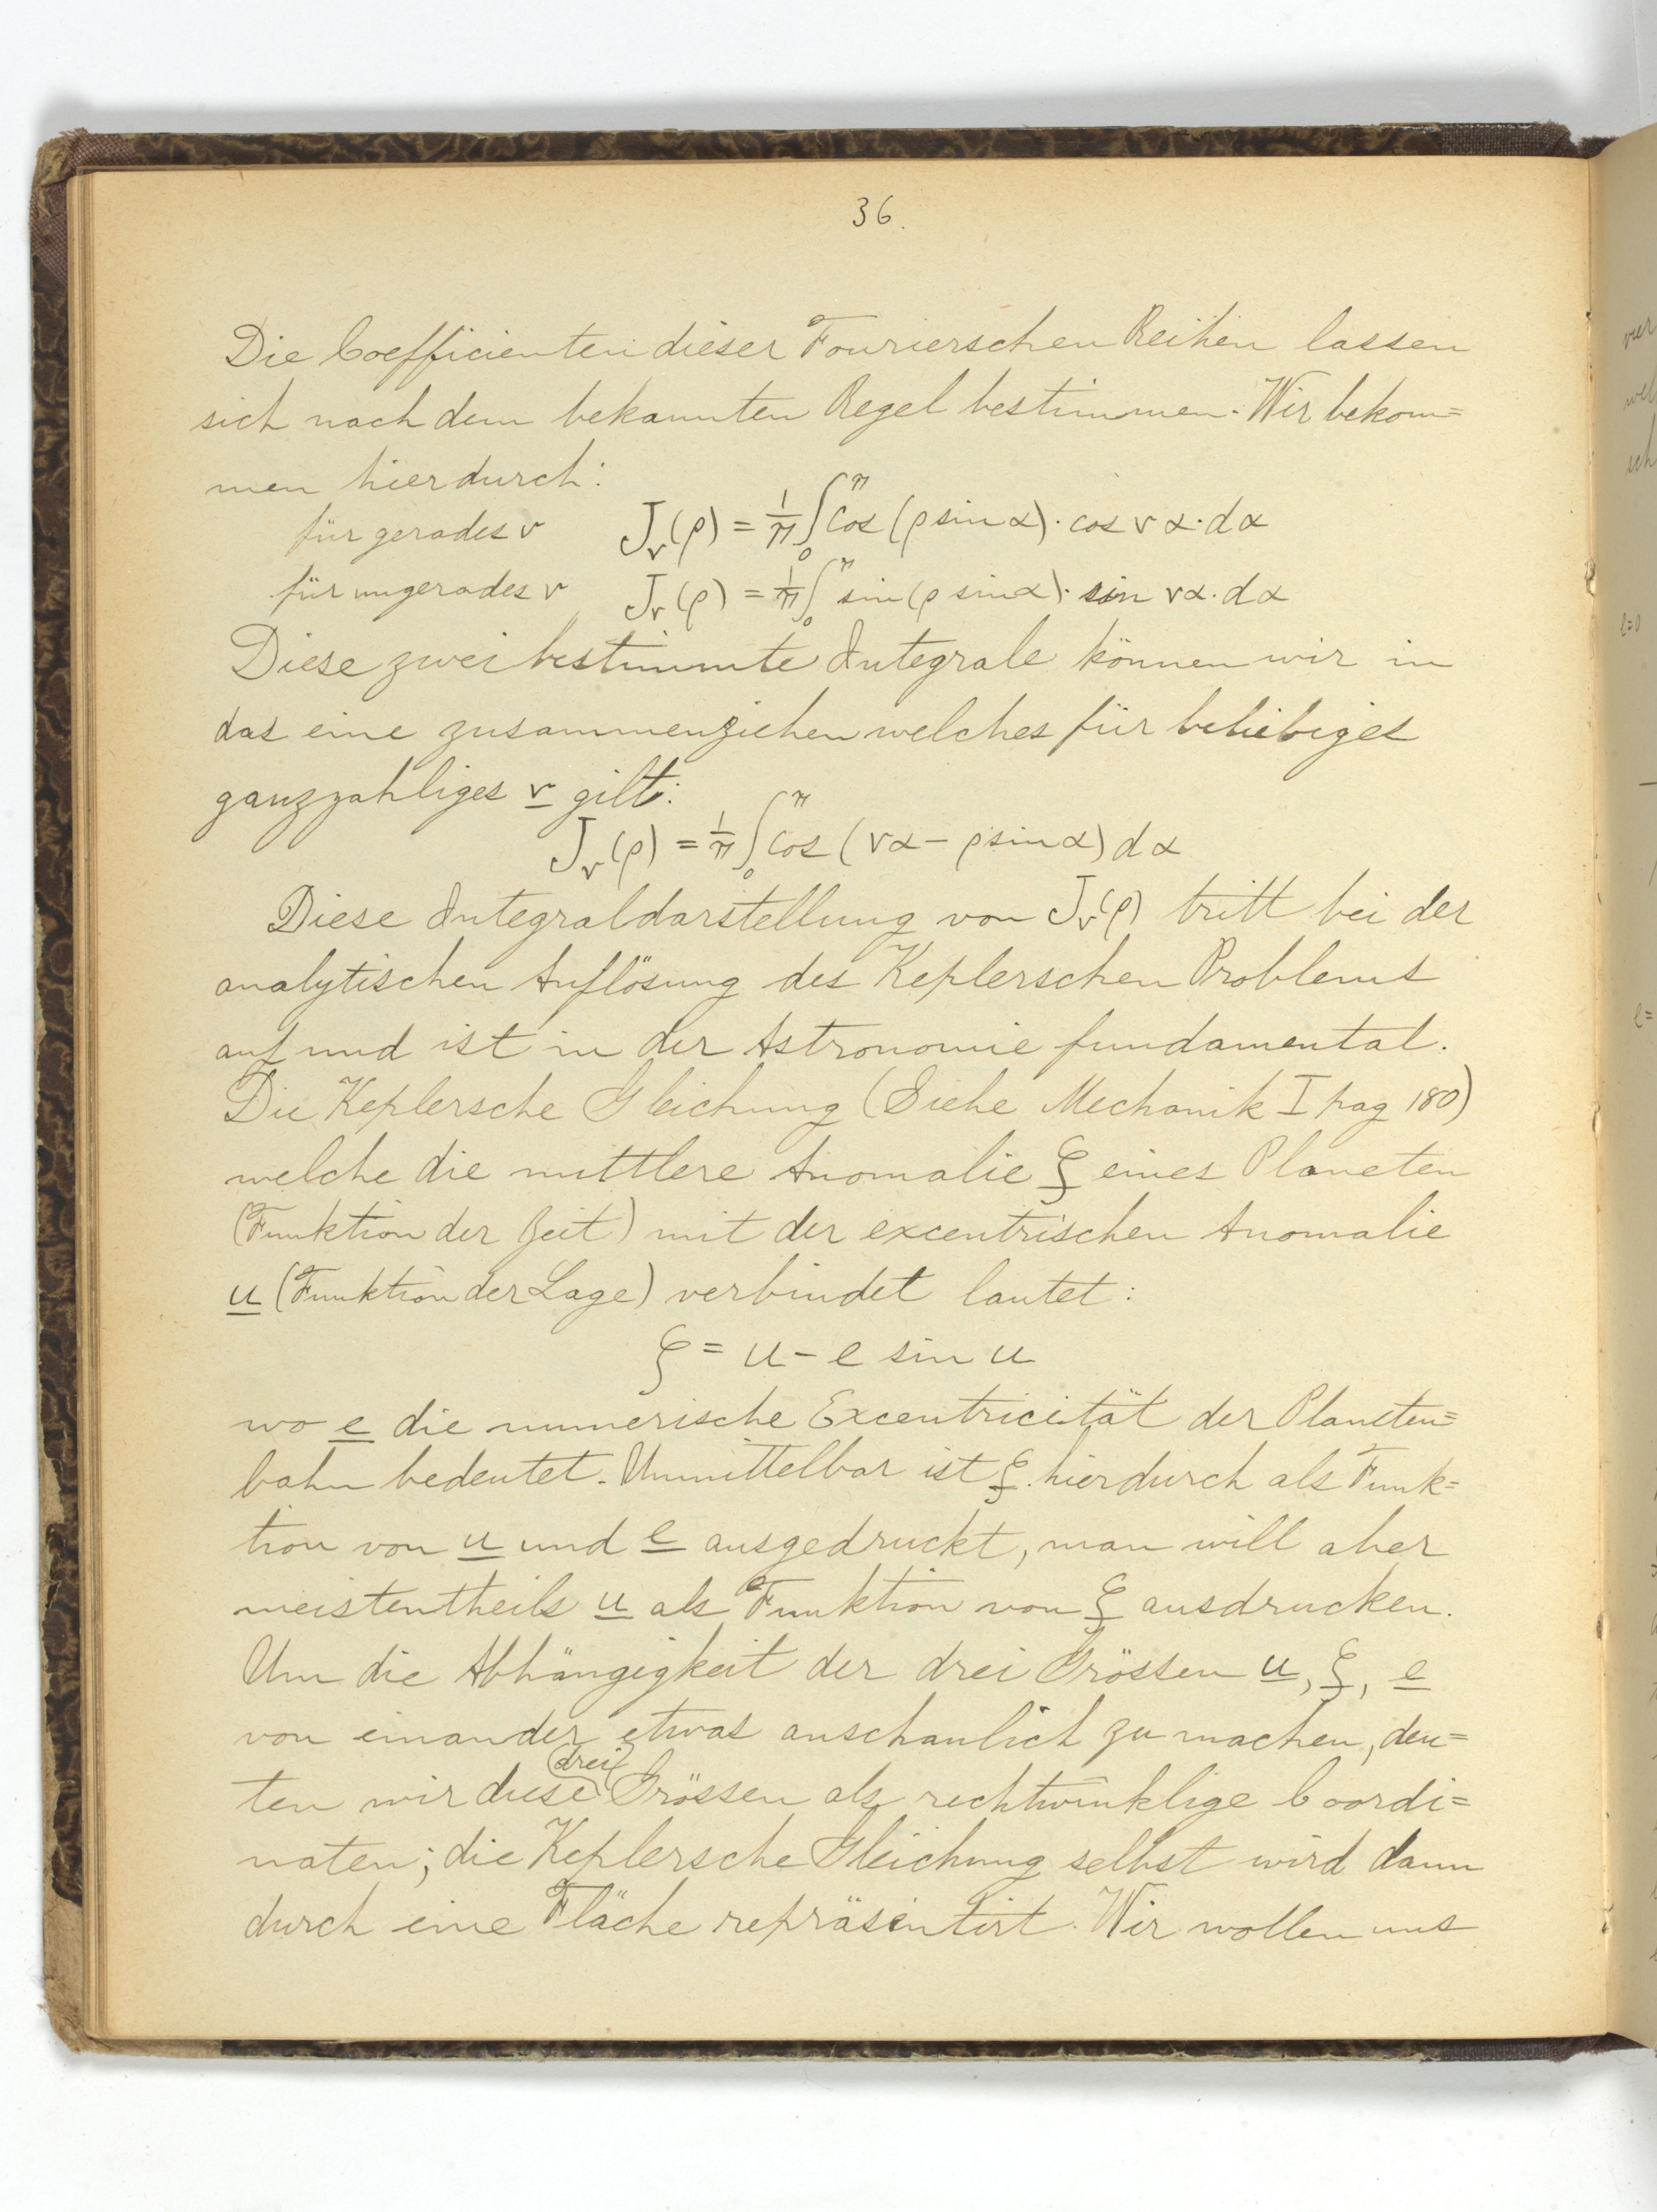 36.
Die Coefficienten dieser Fourierschen Reihen lassen
sich nach dem bekannten Regel bestimmen. Wir bekom=
men hierdurch:
für gerades ν J_ν(ρ) = 1/π ∫_0^π cos (ρ sin α) · cos ν α · dα
für ungerades ν J_ν(ρ) = 1/π ∫_0^π sin (ρ sin α) · sin να · dα
Diese zwei bestimmte Integrale können wir in
das eine zusammenziehen welches für beliebiges
ganzzahliges ν gilt:
J_ν(ρ) = 1/π ∫_0^π cos (να − ρ sin α) dα
Diese Integraldarstellung von J_ν(ρ) tritt bei der
analytischen Auflösung des Keplerschen Problems
auf und ist in der Astronomie fundamental.
Die Keplersche Gleichung (Siehe Mechanik I pag 180)
welche die mittlere Anomalie ξ eines Planeten
(Funktion der Zeit) mit der excentrischen Anomalie
u (Funktion der Lage) verbindet lautet:
ξ = u − e sin u
wo e die numerische Excentricität der Planeten=
bahn bedeutet. Unmittelbar ist ξ hierdurch als Funk=
tion von u und e ausgedruckt, man will aber
meistentheils u als Funktion von ξ ausdrucken.
Um die Abhängigkeit der drei Grössen u, ξ, e
von einander etwas anschaulich zu machen, deu=
ten wir diese drei Grössen als rechtwinklige Coordi=
naten; die Keplersche Gleichung selbst wird dann
durch eine Fläche repräsentirt. Wir wollen uns